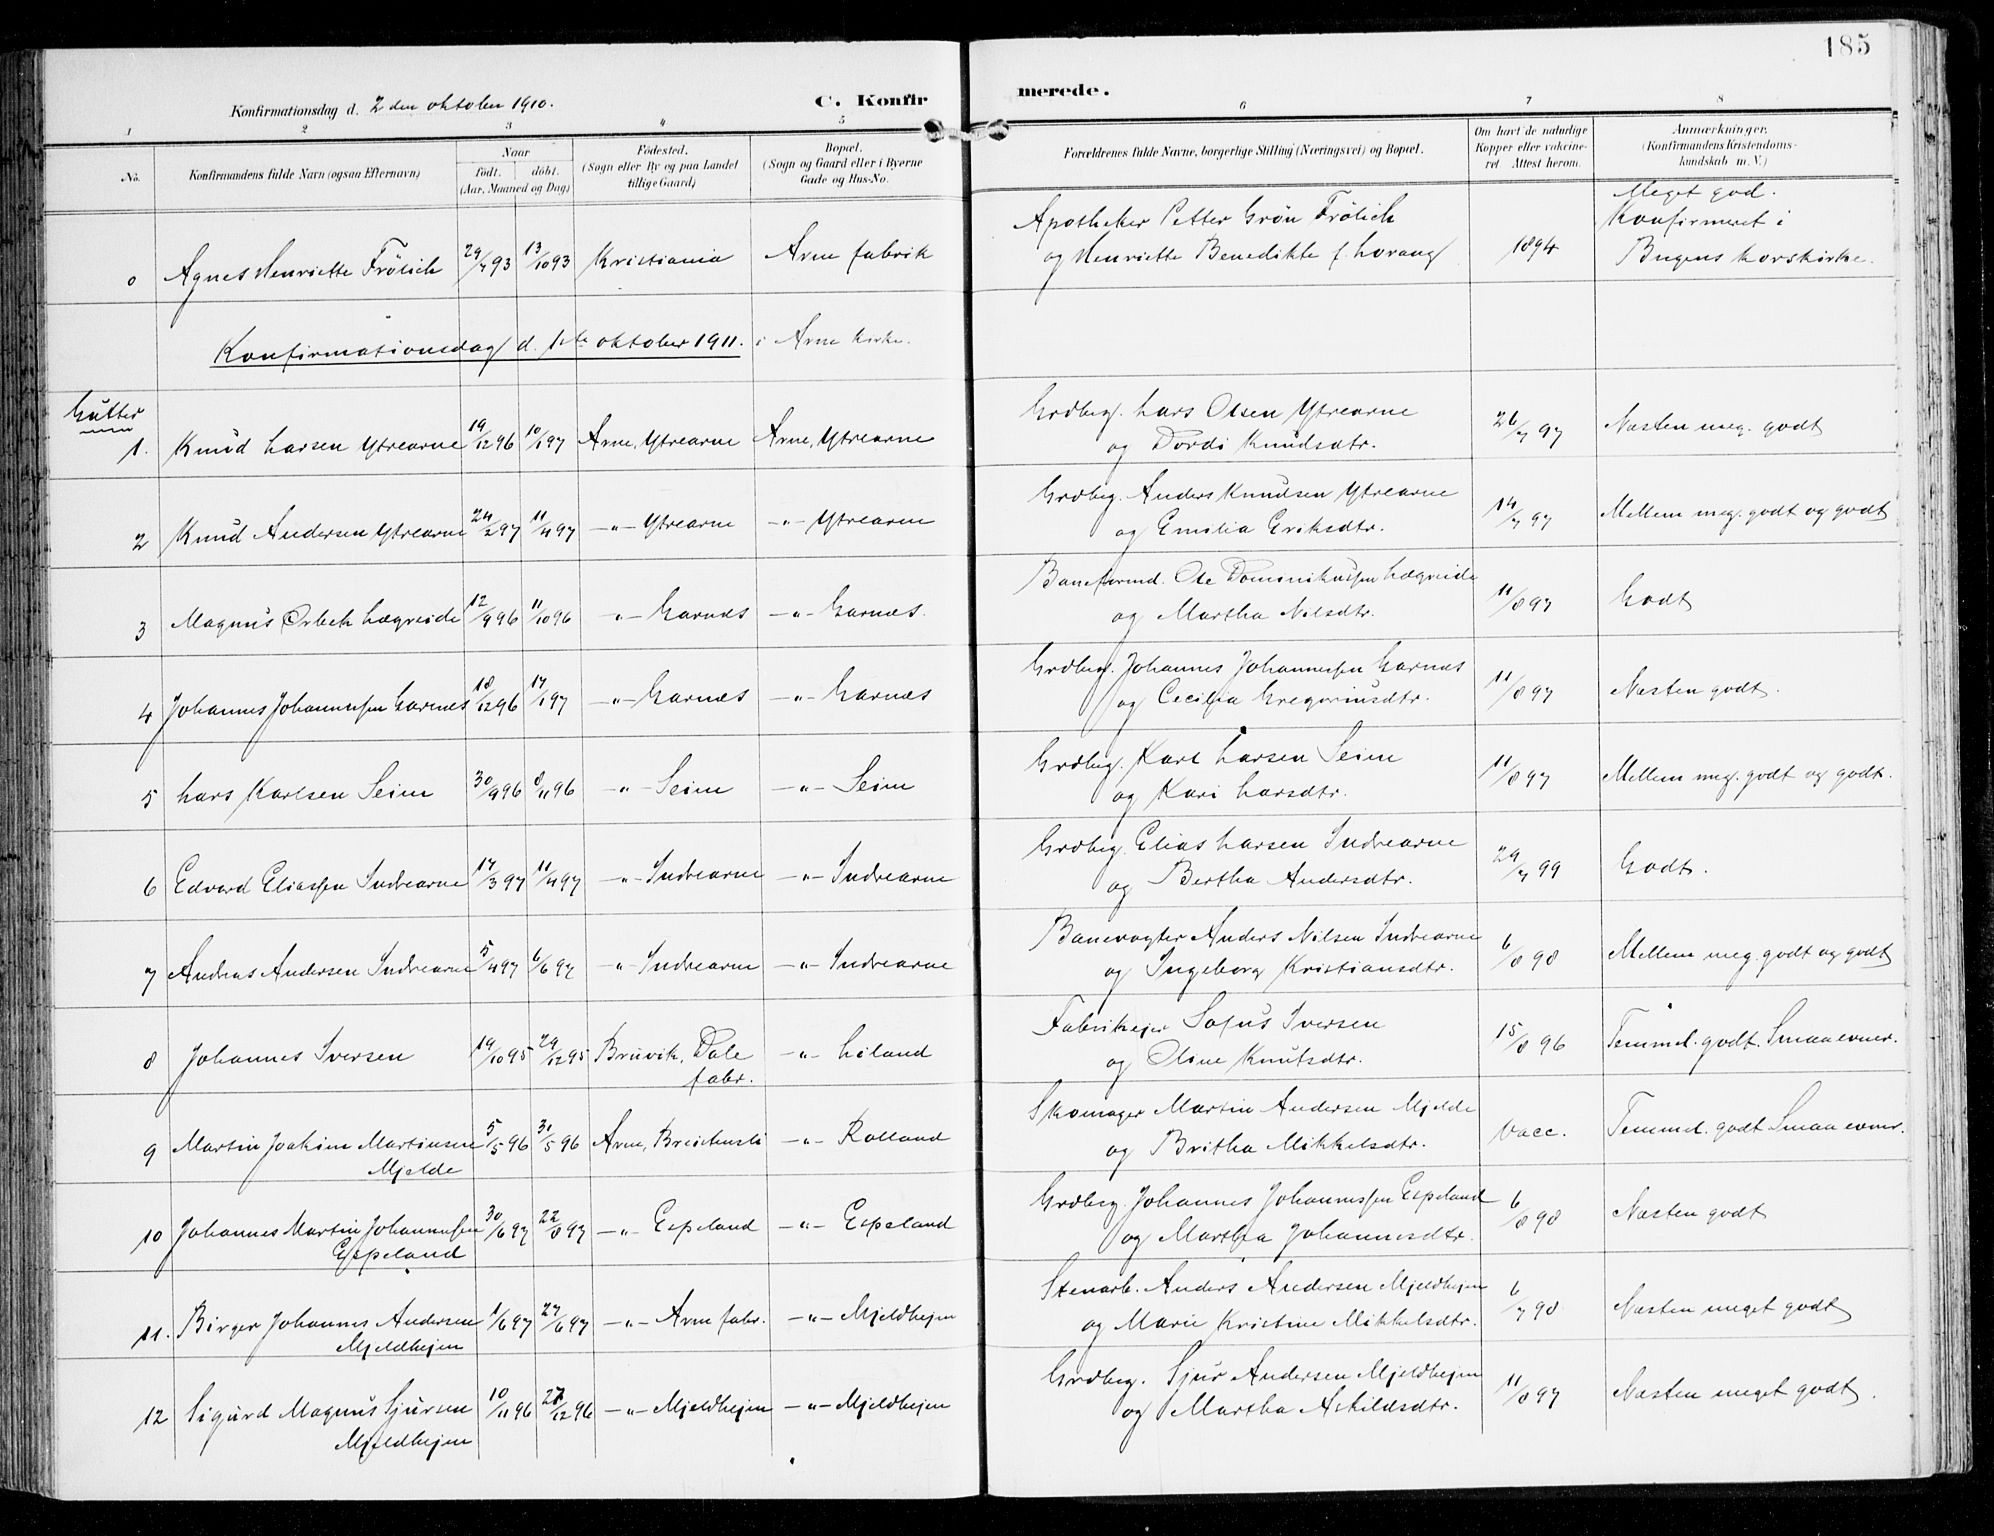 185
Konfirmationsdag d. 2 den oktober 1910.
C. Konfirmerede.
1 2 3 4 5 6 7 8
No.
Konfirmandens fulde Navn (ogsaa Efternavn)
Naar
født. døbt.
(Aar, Maaned og Dag)
Fødested.
(Sogn eller By og paa Landet
tillige Gaard)
Bopæl.
(Sogn og Gaard eller i Byerne
Gade og Hus-No.
Forældrenes fulde Navne, borgerlige Stilling (Næringsvei) og Bopæl.
Om havt de naturlige
Kopper eller vakcine-
ret Attest herom.
Anmærkninger.
(Konfirmandens Kristendoms-
kundskab m. V.)
0 Agnes Henriette Frölich 29/7 93 13/10 93 Kristiania Arne fabrik
Apotheker Petter Grön Frölich
og Henriette Benedikte f. Lorang 1894
Meget god.
Konfirmeret i
Bergens korskirke.
Konfirmationsdag d. 1ste oktober 1911. i Arne kirke.
Gutter
1. Knud Larsen Ytrearne 19/12 96 10/1 97 Arne, Ytrearne Arne, Ytrearne
Grdbrg. Lars Olsen Ytrearne
og Dordi Knudsdtr. 26/7 97 Næsten meg. godt
2 Knud Andersen Ytrearne 24/2 97 11/4 97 -"- Ytrearne -"- Ytrearne
Grdbrg. Anders Knudsen Ytrearne
og Emilia Eriksdtr. 14/7 97 Mellem meg. godt og godt
3 Magnus Orbek Lægreide 12/9 96 11/10 96 -"- Garnæs -"- Garnæs.
Baneformd. Ole Dominikussen Lægreide
og Martha Nilsdtr. 11/8 97 Godt
4 Johannes Johannessen Garnæs 18/12 96 17/1 97 -"- Garnæs -"- Garnæs
Grdbrg. Johannes Johannessen Garnæs
og Cecilia Gregoriusdtr. 11/8 97 Næsten godt.
5 Lars Karlsen Seim 30/9 96 8/11 96 -"- Seim -"- Seim
Grdbrg. Karl Larsen Seim
og Kari Larsdtr. 11/8 97 Mellem meg. godt og godt.
6 Edvard Eliassen Indrearne 17/3 97 11/4 97 -"- Indrearne -"- Indrearne
Grdbrg. Elias Larsen Indrearne
og Bertha Andersdtr. 29/7 99 Godt.
7 Andreas Andersen Indrearne 5/4 97 6/6 97 -"- Indrearne -"- Indrearne
Banevogter Anders Nilsen Indrearne
og Ingeborg Kristiansdtr. 6/8 98 Mellem meg. godt og godt
8 Johannes Iversen 19/10 95 29/12 95 Bruvik, Dale -"- Liland
fabr.
Fabrikejer Sofus Iversen
og Oline Knutsdtr. 15/8 96 Temmel. godt. Smaa evner.
9 Martin Joakim Martinsen 5/5 96 31/5 96 Arne, -"- Rolland
Mjelde
Skomager Martin Andersen Mjelde
og Britha Mikkelsdtr. Vacc. Temmel. godt Smaa evner.
10 Johannes Martin Johannessen 30/6 97 22/8 97 -"- Espeland -"- Espeland
Espeland
Grdbrg. Johannes Johannessen Espeland
og Martha Johannesdtr. 6/8 98 Næsten godt
11. Birger Johannes Andersen 1/6 97 27/6 97 -"- Arne fabr. -"- Mjeldhejen
Mjeldhejen
Stenarb. Anders Andersen Mjeldhejen
og Marie Kristine Mikkelsdtr. 6/7 98 Næsten meget godt
12 Sigurd Magnus Sjursen 10/11 96 27/12 96 -"- Mjeldhejen -"- Mjeldhejen
Mjeldhejen
Grdbrg. Sjur Andersen Mjeldhejen
og Martha Askildsdtr. 11/8 97 Næsten meget godt.